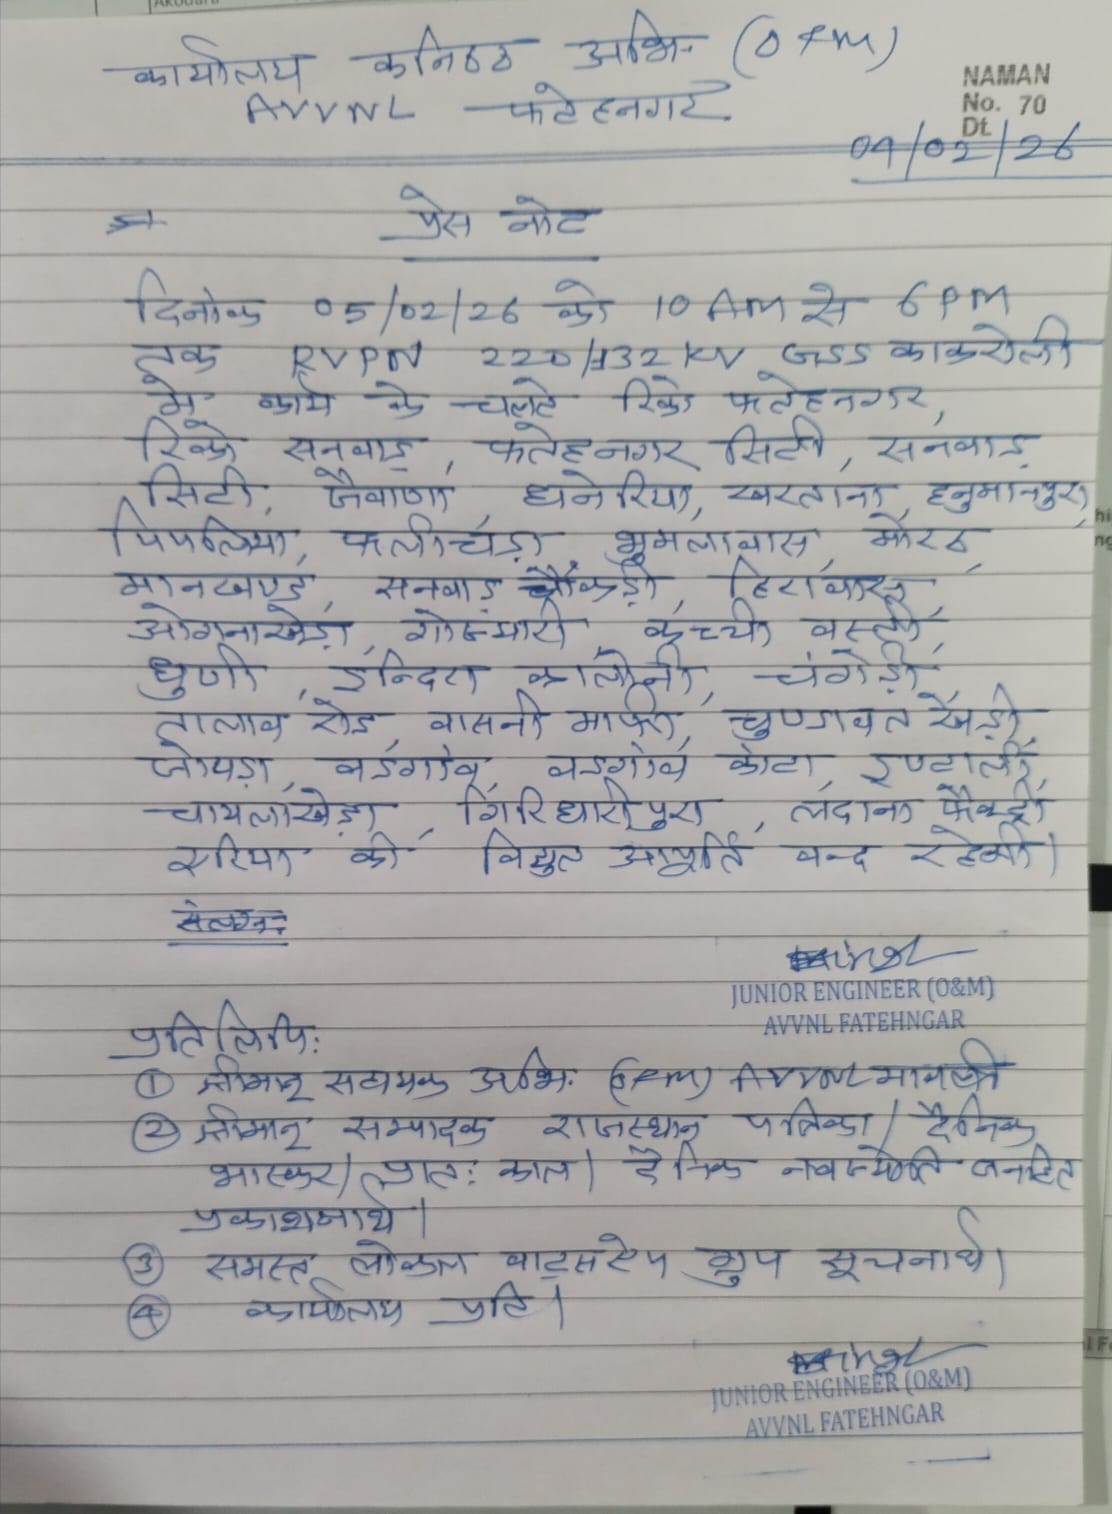 कार्यालय कनिष्ठ अभि. (O&M)
AVVNL फतेहनगर
NAMAN
No. 70
Dt.
04/02/26
प्रेस नोट
दिनांक 05/02/26 को 10 AM से 6 PM
तक RVPN 220/132 KV GSS कांकरोली
में कार्य के चलते रिको फतेहनगर,
रिको सनवाड़, फतेहनगर सिटी, सनवाड़
सिटी, जैवाणा, धनेरिया, खरताना, हनुमानपुरा,
पिपलिया, फलीचड़ा, भुमलावास, मोरठ,
मानखण्ड, सनवाड़ चौकड़ी, हिरावास,
ओगनाखेड़ा, गोजमारी, कच्ची बस्ती,
धुणी, इन्दिरा कालोनी, चंगेड़ी,
तालाब रोड, वासनी माफी, चुण्डावत खेड़ी,
जोयड़ा, बडगांव, वडगांव कोटा, इण्टाली,
चायलाखेड़ा, गिरिधारीपुरा, लदाना फैक्ट्री
एरिया की विद्युत आपूर्ति बन्द रहेगी।
संलग्न:
JUNIOR ENGINEER (O&M)
AVVNL FATEHNGAR
प्रतिलिपि:
① श्रीमान् सहायक अभि. (O&M) AVVNL मावली
② श्रीमान् सम्पादक राजस्थान पत्रिका/दैनिक
भास्कर/प्रात: काल/दैनिक नवज्योति जनहित
प्रकाशनार्थ।
③ समस्त लोकल वाट्सएप ग्रुप सूचनार्थ।
④ कार्यालय प्रति।
JUNIOR ENGINEER (O&M)
AVVNL FATEHNGAR